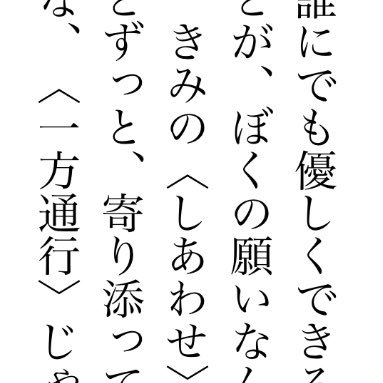 誰にでも優しくできる
とが、ぼくの願いなん
きみの〈しあわせ〉
とずっと、寄り添って
な、〈一方通行〉じゃ